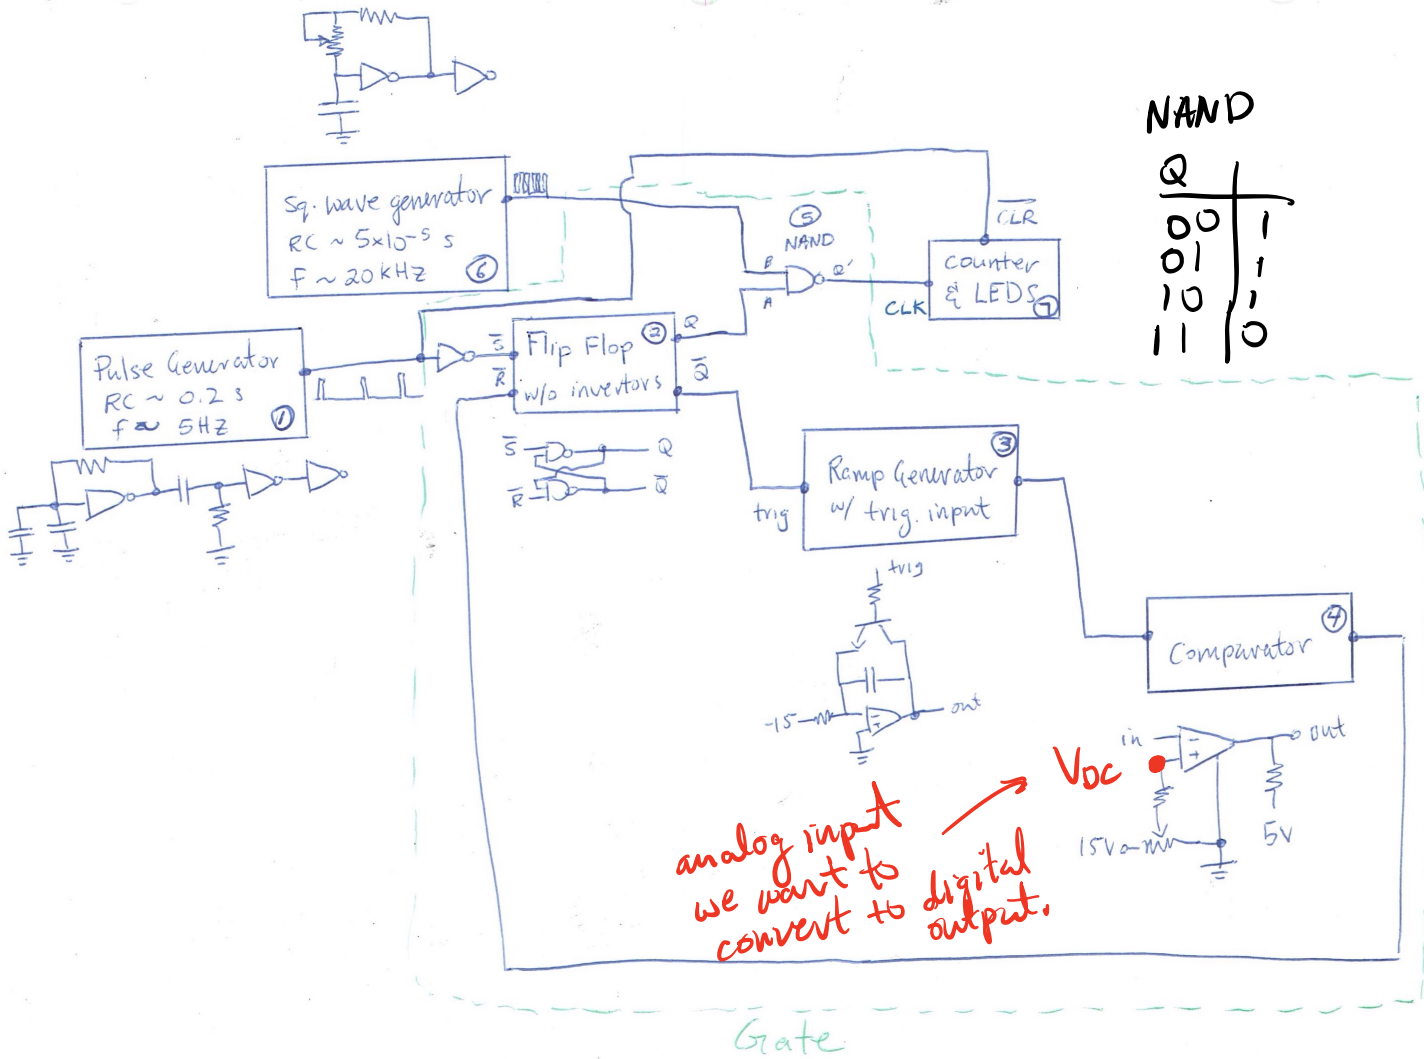 Sq. wave generator
RC ~ 5x10⁻⁵ s
f ~ 20 kHz
6
Pulse Generator
RC ~ 0.2 s
f ~ 5Hz
1
S̅
R̅
Flip Flop
w/o invertors
2
Q
Q̅
S̅
Q
R̅
Q̅
5
NAND
B
A
Q'
CLR̅
CLK
Counter
& LEDS
7
NAND
Q
00 1
01 1
10 1
11 0
trig
Ramp Generator
w/ trig. input
3
trig
-15
-
+
out
Comparator
4
in
-
+
out
15V
5V
VDC
analog input
we want to
convert to digital
output.
Gate